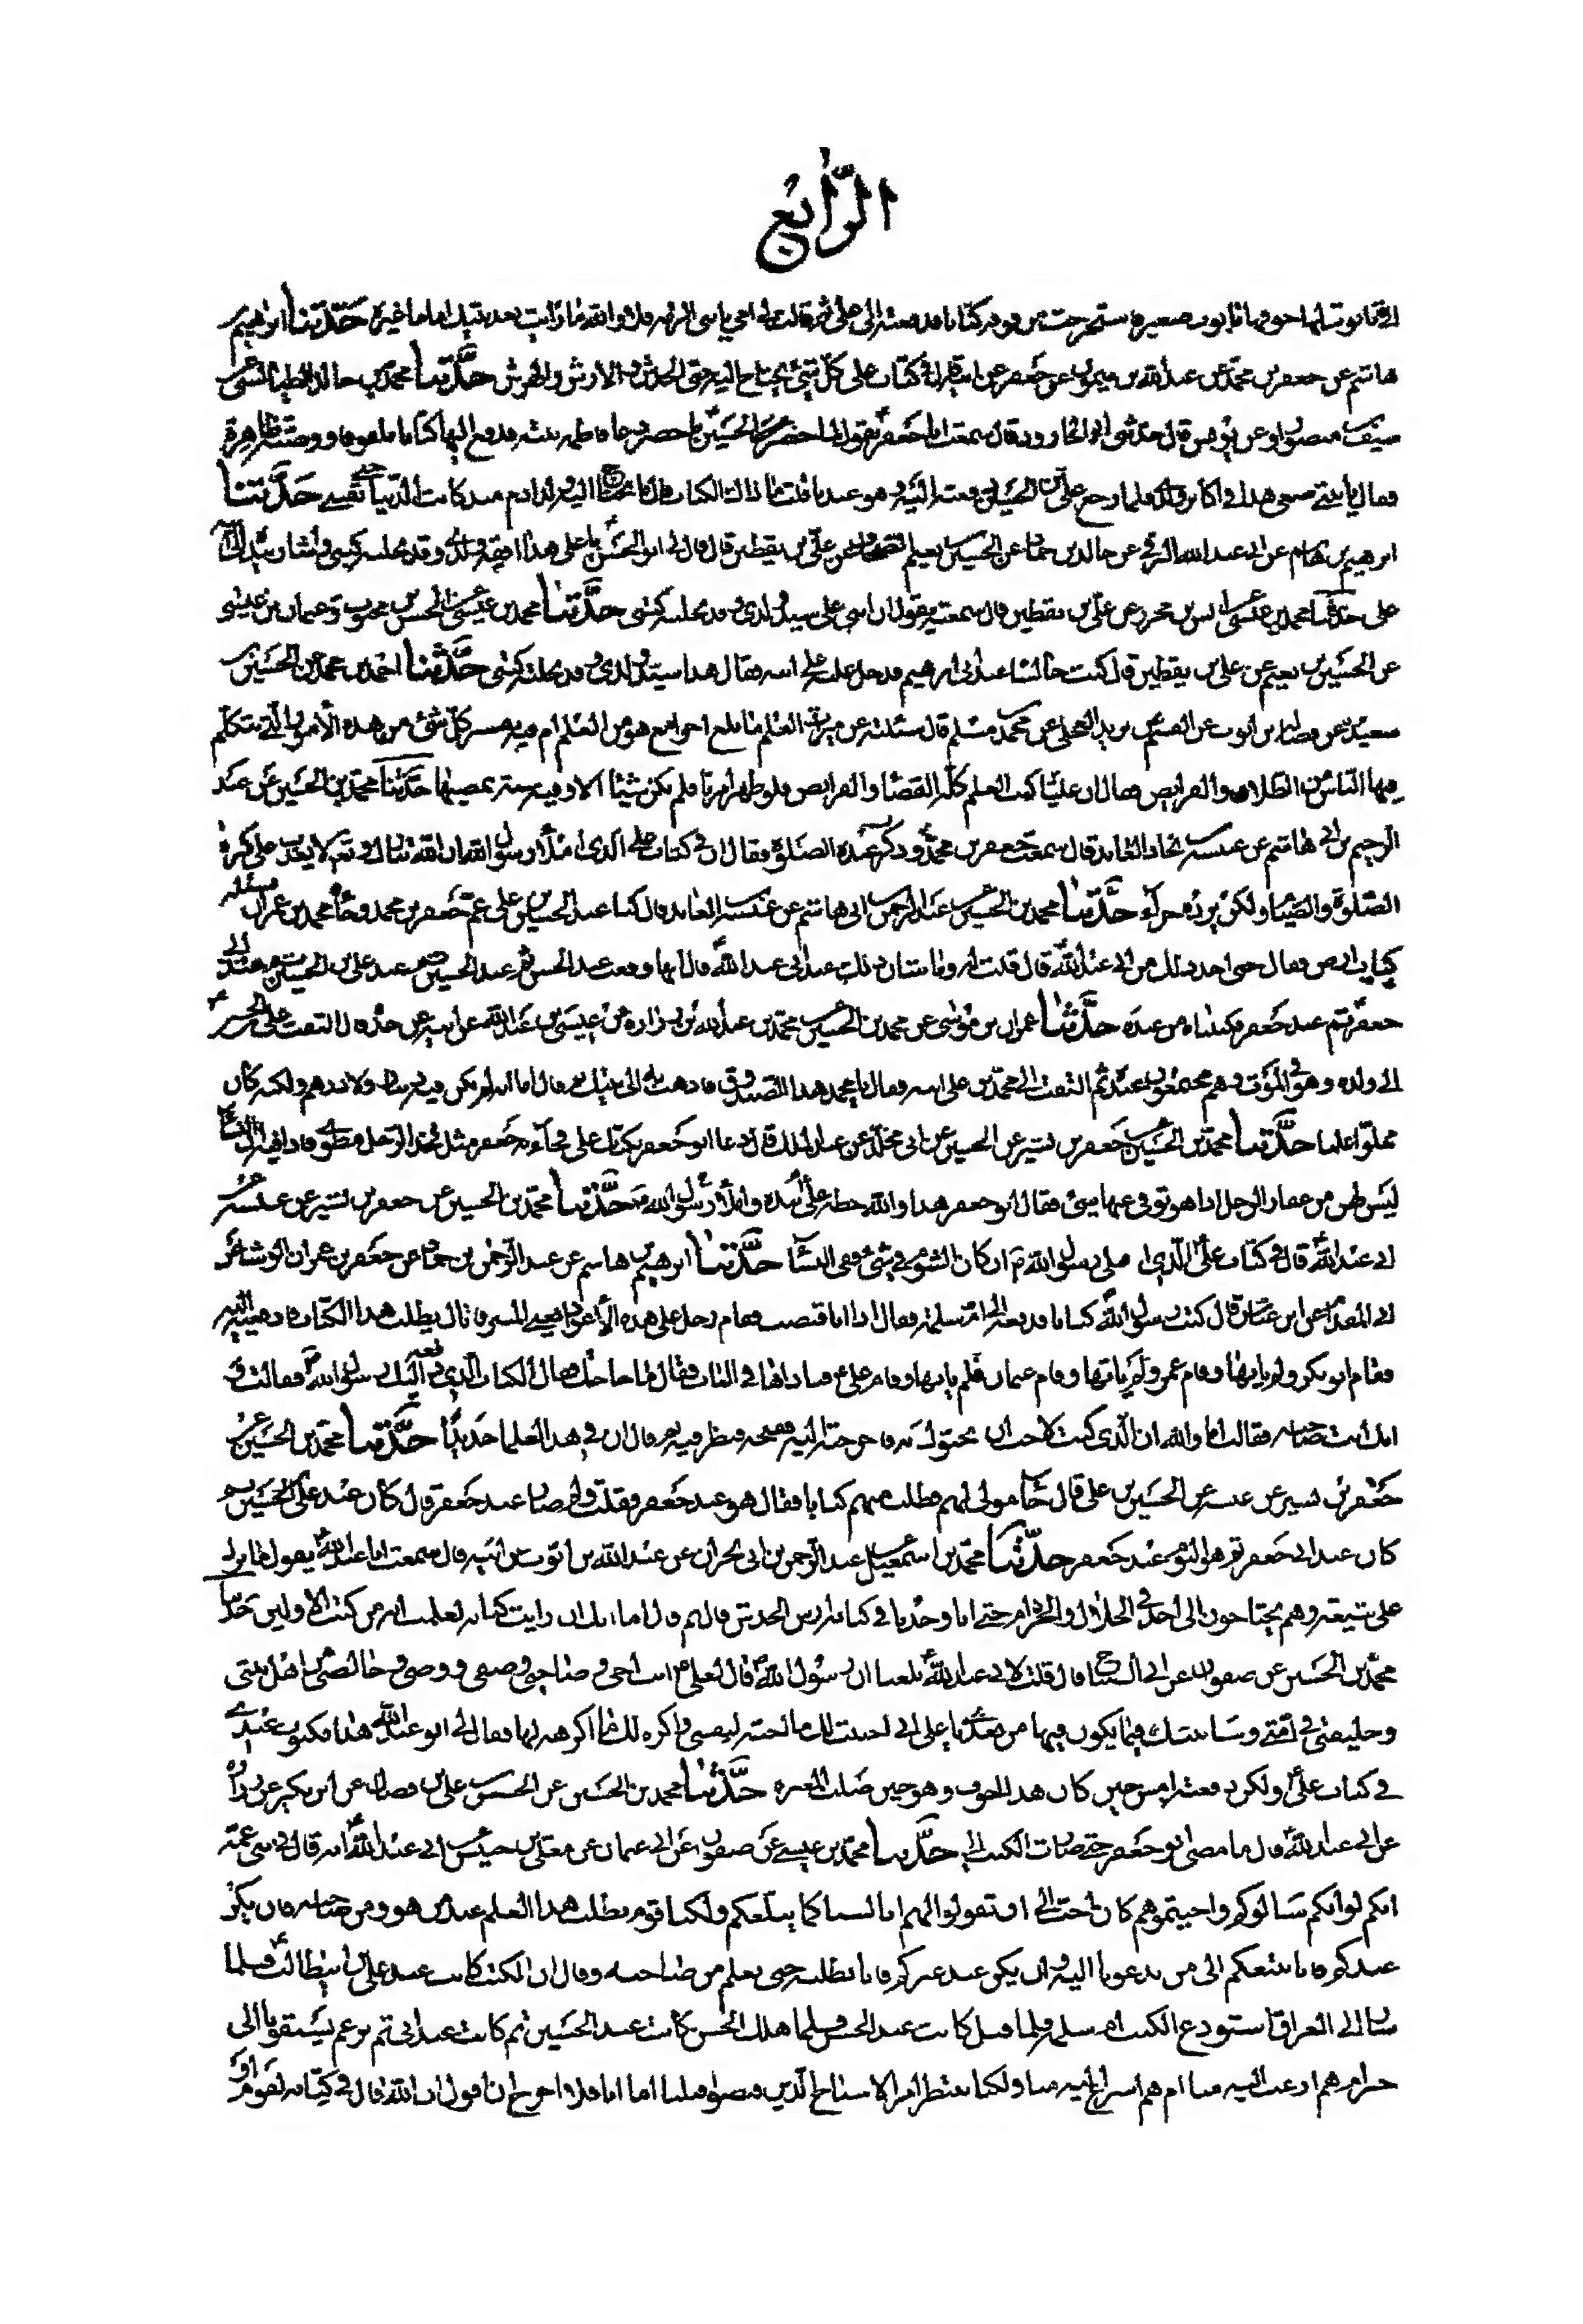 الرابع
حدثنا ابرهيم
هاشم عن جعفر بن محمد عن عبد الله بن ميمون عن جعفر عن ابيه قال في كتاب علي كل شئ يحتاج اليه حتى الخدش والارش والهرش حدثنا محمد بن خالد الطيالسي عن
سيف منصور او عن يونس قال حدثني ابو الجارود قال سمعت ابا جعفر يقول لما حضر الحسين ما حضر دعا فاطمة بنته فدفع اليها كتابا ملفوفا ووصية ظاهرة
فقال يا بنتي ضعي هذا في اكابر ولدي فلما رجع علي بن الحسين دفعته اليه وهو عندنا قلت ما ذاك الكتاب قال ما يحتاج اليه ولد ادم منذ كانت الدنيا حتى تفنى حدثنا
ابرهيم بن هاشم عن ابي عبد الله البرقي عن خالد بن حماد عن الحسين بن نعيم عن علي بن يقطين قال قال لي ابو الحسن يا علي هذا افقه ولدي وقد نحلته كنيتي واشار بيده الى
علي حدثنا محمد بن عيسى عن انس بن محرز عن علي بن يقطين قال سمعته يقول ان ابني علي سيد ولدي وقد نحلته كنيتي حدثنا محمد بن عيسى عن الحسن بن محبوب وعثمان بن عيسى
عن الحسين بن نعيم عن علي بن يقطين قال كنت جالسا عند ابي ابرهيم فدخل عليه علي ابنه فقال هذا سيد ولدي وقد نحلته كنيتي حدثنا احمد بن محمد عن الحسين بن
سعيد عن فضالة بن ايوب عن القسم بن بريد العجلي عن محمد بن مسلم قال سئلته عن ميراث العلم ما بلغ اجوامع هو من العلم ام فيه تفسير كل شئ من هذه الامور التي يتكلم
فيها الناس من الطلاق والفرايض فقال ان عليا كتب العلم كله القضا والفرايض فلو ظهر امرنا فلم يكن شيئا الا وفيه سنة يمضيها حدثنا محمد بن الحسين عن عبد
الرحيم بن ابي هاشم عن عنبسة بن بجاد العابد قال سمعت جعفر بن محمد وذكر عنده الصلوة فقال ان في كتاب علي الذي املا رسول الله ان الله تبارك وتع لا يعذب على كثرة
الصلوة والصيام ولكن يزيده جزاء حدثنا محمد بن الحسين عن عبد الرحمن بن ابي هاشم عن عنبسة العابد قال كنا عند الحسين بن علي عم جعفر بن محمد وجاء محمد بن عمران فسئله
كتاب ارض فقال حتى اخذ ذلك من ابي عبد الله قال قلت له وما شان ذلك عند ابي عبد الله قال انها وقعت عند الحسن ثم عند الحسين ثم عند علي بن الحسين ثم عند ابي
جعفر ثم عند جعفر فكتبناه من عنده حدثنا عمران بن موسى عن محمد بن الحسين عن محمد بن عبد الله بن زرارة عن عيسى بن عبد الله عن ابيه عن جده قال التفت علي بن الحسين
الى ولده وهو في الموت وهم مجتمعون عنده ثم التفت الى محمد بن علي ابنه فقال يا محمد هذا الصندوق فاذهب به الى بيتك ثم قال اما انه لم يكن فيه دينار ولا درهم ولكنه كان
مملوا علما حدثنا محمد بن الحسين عن جعفر بن بشير عن الحسين عن ابي مخلد عن عبد الملك قال دعا ابو جعفر بكتاب علي فجاء به جعفر مثل فخذ الرجل مطوي فاذا فيه ان النساء
ليس لهن من عقار الرجل اذا هو توفي عنها شئ فقال ابو جعفر هذا والله خط علي بيده واملا رسول الله حدثنا محمد بن الحسين عن جعفر بن بشير عن عنبسة عن
ابي عبد الله قال في كتاب علي الذي املى رسول الله ان كان الشوم في شئ ففي النساء حدثنا ابرهيم بن هاشم عن عبد الرحمن بن حماد عن جعفر بن عمران الوشا عن
ابي المقدام عن ابن عباس قال كتب رسول الله كتابا فدفعه الى ام سلمة فقال اذا انا قبضت فقام رجل على هذه الاعواد يعني المنبر فاتاك يطلب هذا الكتاب فادفعيه اليه
فقام ابو بكر ولم ياتها وقام عمر ولم ياتها وقام عثمان فلم ياتها وقام علي فناداها في الباب فقال ما حاجتك فقال الكتاب الذي دفعه اليك رسول الله فقالت و
انك انت صاحبه فقالت اما والله ان الذي كنت لاحب ان يحبوك به فاخرجته اليه ففتحه فنظر فيه ثم قال ان في هذا لعلما جديدا حدثنا محمد بن الحسين عن
جعفر بن بشير عن عنبسة عن الحسين بن علي قال جاء مولى لهم فطلب منهم كتابا فقال هو عند جعفر فقلت ولم صار عند جعفر قال كان عند علي بن الحسين ثم
كان عند ابي جعفر ثم هو اليوم عند جعفر حدثنا محمد بن اسمعيل عن عبد الرحمن بن ابي نجران عن عبد الله بن ايوب عن ابيه قال سمعت ابا عبد الله يقول ما ترك
علي شيعته وهم يحتاجون الى احد في الحلال والحرام حتى انا وجدنا في كتابه ارش الخدش قال ثم قال اما انك ان رايت كتابه لعلمت انه من كتب الاولين حدثنا
محمد بن الحسين عن صفوان عن ابي الصباح قال قلت لابي عبد الله بلغنا ان رسول الله قال لعلي انت اخي وصاحبي وصفي ووصيي وخالصي من اهل بيتي
وخليفتي في امتي وسانبئك فيما يكون فيها من بعدي يا علي اني احببت لك ما احبه لنفسي واكره لك ما اكرهه لها فقال لي ابو عبد الله هذا مكتوب عندي
في كتاب علي ولكن دفعته امس حين كان هذا الخوف وهو حين صلب المغيرة حدثنا محمد بن الحسين عن الحسن بن علي بن فضال عن ابن بكير عن زرارة
عن ابي عبد الله قال ما مضى ابو جعفر حتى صارت الكتب الي حدثنا محمد بن عيسى عن صفوان عن ابي عثمان عن معلى بن خنيس عن ابي عبد الله انه قال في بني عمه
انكم لو انكم سالوكم واجبتموهم كان احب الي ان تقولوا لهم انا لسنا كما يبلغكم ولكنا قوم نطلب هذا العلم عند من هو ومن صاحبه فان يكن
عندكم فانا نتبعكم الى من يدعونا اليه وان يكن عند غيركم فانا نطلبه حتى نعلم من صاحبه وقال ان الكتب كانت عند علي بن ابي طالب فلما
سار الى العراق استودع الكتب ام سلمة فلما قتل كانت عند الحسن فلما هلك الحسن كانت عند الحسين ثم كانت عند ابي ثم تزعم يسبقونا الى
خير ام هم ارغب اليه منا ام هم اسرع اليه منا ولكنا ننتظر امر الاشياخ الذين قبضوا قبلنا اما انا فلا احرج ان اقول ان الله قال في كتابه لقوم او